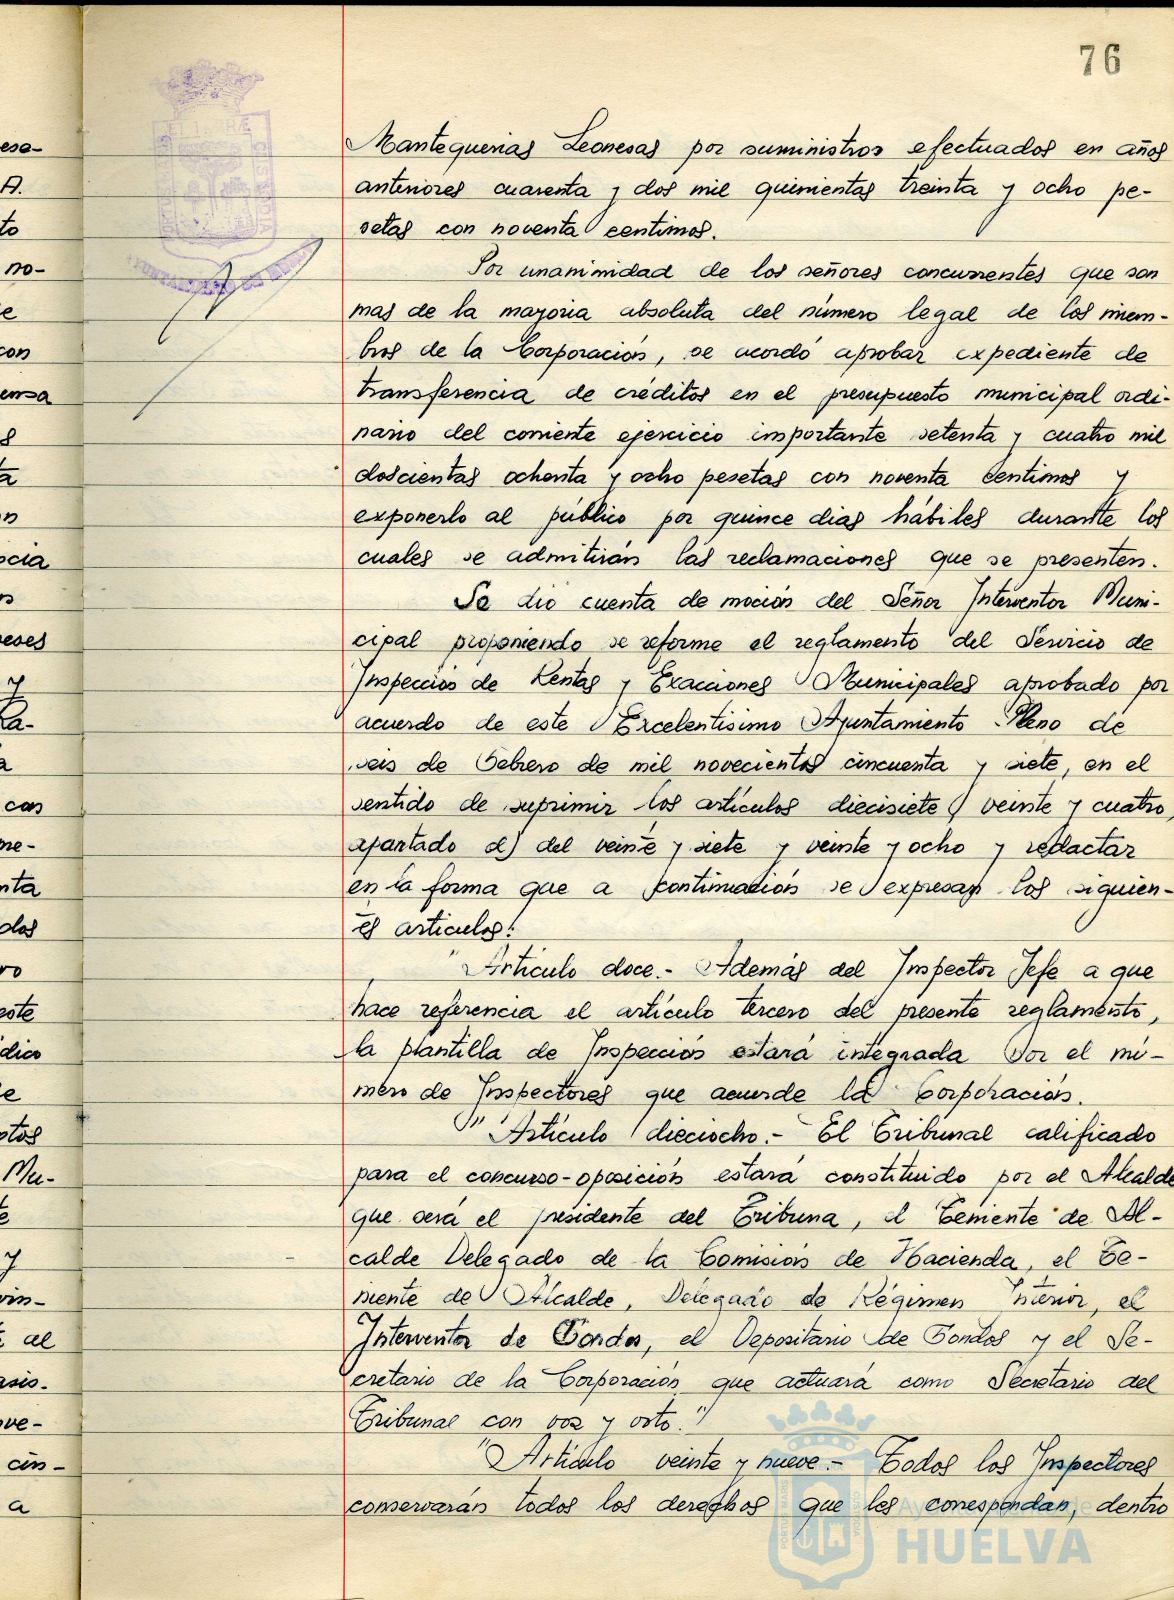 76
Mantequerias Leonesas por suministros efectuados en años
anteriores cuarenta y dos mil quinientas treinta y ocho pe-
setas con noventa centimos.
Por unanimidad de los señores concurrentes que son
mas de la mayoria absoluta del número legal de los miem-
bros de la Corporación, se acordó aprobar expediente de
transferencia de créditos en el presupuesto municipal ordi-
nario del corriente ejercicio importante setenta y cuatro mil
doscientas ochenta y ocho pesetas con noventa centimos y
exponerlo al público por quince dias hábiles durante los
cuales se admitirán las reclamaciones que se presenten.
Se dió cuenta de moción del Señor Interventor Muni-
cipal proponiendo se reforme el reglamento del Servicio de
Inspección de Rentas y Exacciones Municipales aprobado por
acuerdo de este Excelentisimo Ayuntamiento Pleno de
seis de Febrero de mil novecientos cincuenta y siete, en el
sentido de suprimir los artículos diecisiete, veinte y cuatro,
apartado d) del veinte y siete y veinte y ocho y redactar
en la forma que a continuación se expresan los siguien-
es articulos:
"Artículo doce.- Además del Inspector Jefe a que
hace referencia el artículo tercero del presente reglamento,
la plantilla de Inspección estará integrada por el nú-
mero de Inspectores que acuerde la Corporación.
" Artículo dieciocho.- El Tribunal calificado
para el concurso-oposición estará constituido por el Alcalde
que será el presidente del Tribuna, el Teniente de Al-
calde Delegado de la Comisión de Hacienda, el Te-
niente de Alcalde, Delegado de Régimen Interior, el
Interventor de Fondos, el Depositario de Fondos y el Se-
cretario de la Corporación que actuará como Secretario del
Tribunal con voz y voto."
"Artículo veinte y nueve.- Todos los Inspectores
conservarán todos los derechos que les correspondan, dentro
Ayuntamiento de
HUELVA
esa-
A.
to
no-
e
con
ensa
s
ta
n
ocia
eses
y
a
cas
me-
nta
dos
ro
este
dico
e
otos
Mu-
te
y
vin-
al
asis.
ve-
cin-
a